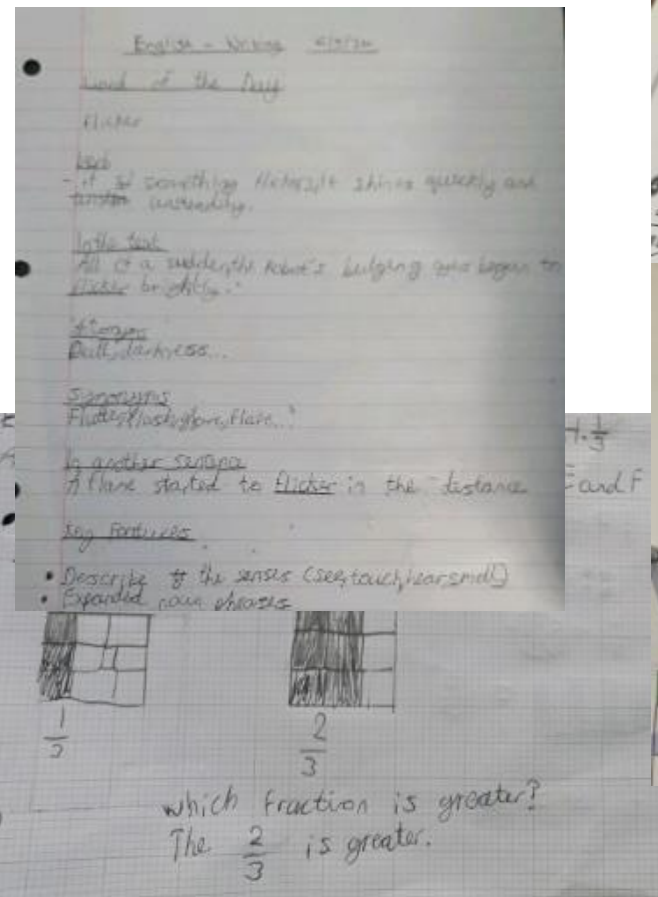 English - Writing
Word of the Day
Flicker
Verb
- if something flickers, it shines quickly and
In the text
All of a sudden, the robot's bulging began to
flicker brightly.
Dull, darkness...
Synonyms
Flutter, flash, glare, flare...
In another
A flame started to flicker in the distance
Key Features
• Describe the senses (see, touch, hear, smell)
• Expanded noun phrases
H. 1/3
E and F
1/3
2/3
which fraction is greater?
The 2/3 is greater.